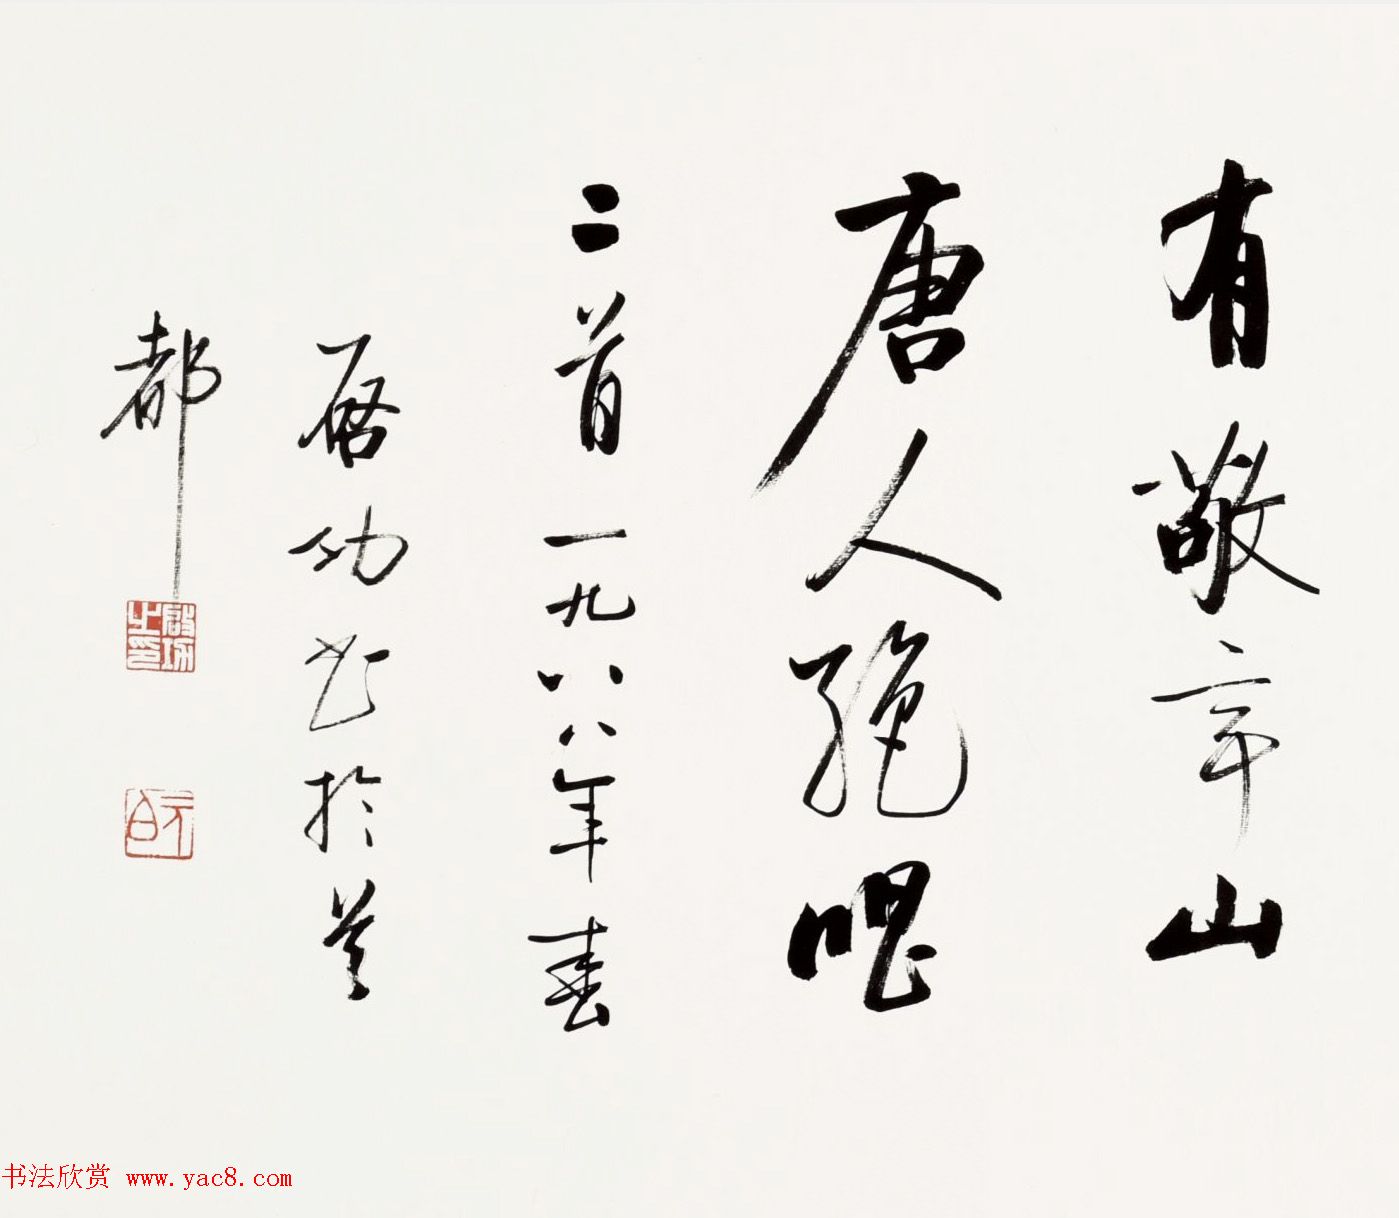 有敬亭山
唐人絶唱
二首一九八八年春
啓功书於首
都
啓功之印
元白
书法欣赏 www.yac8.com